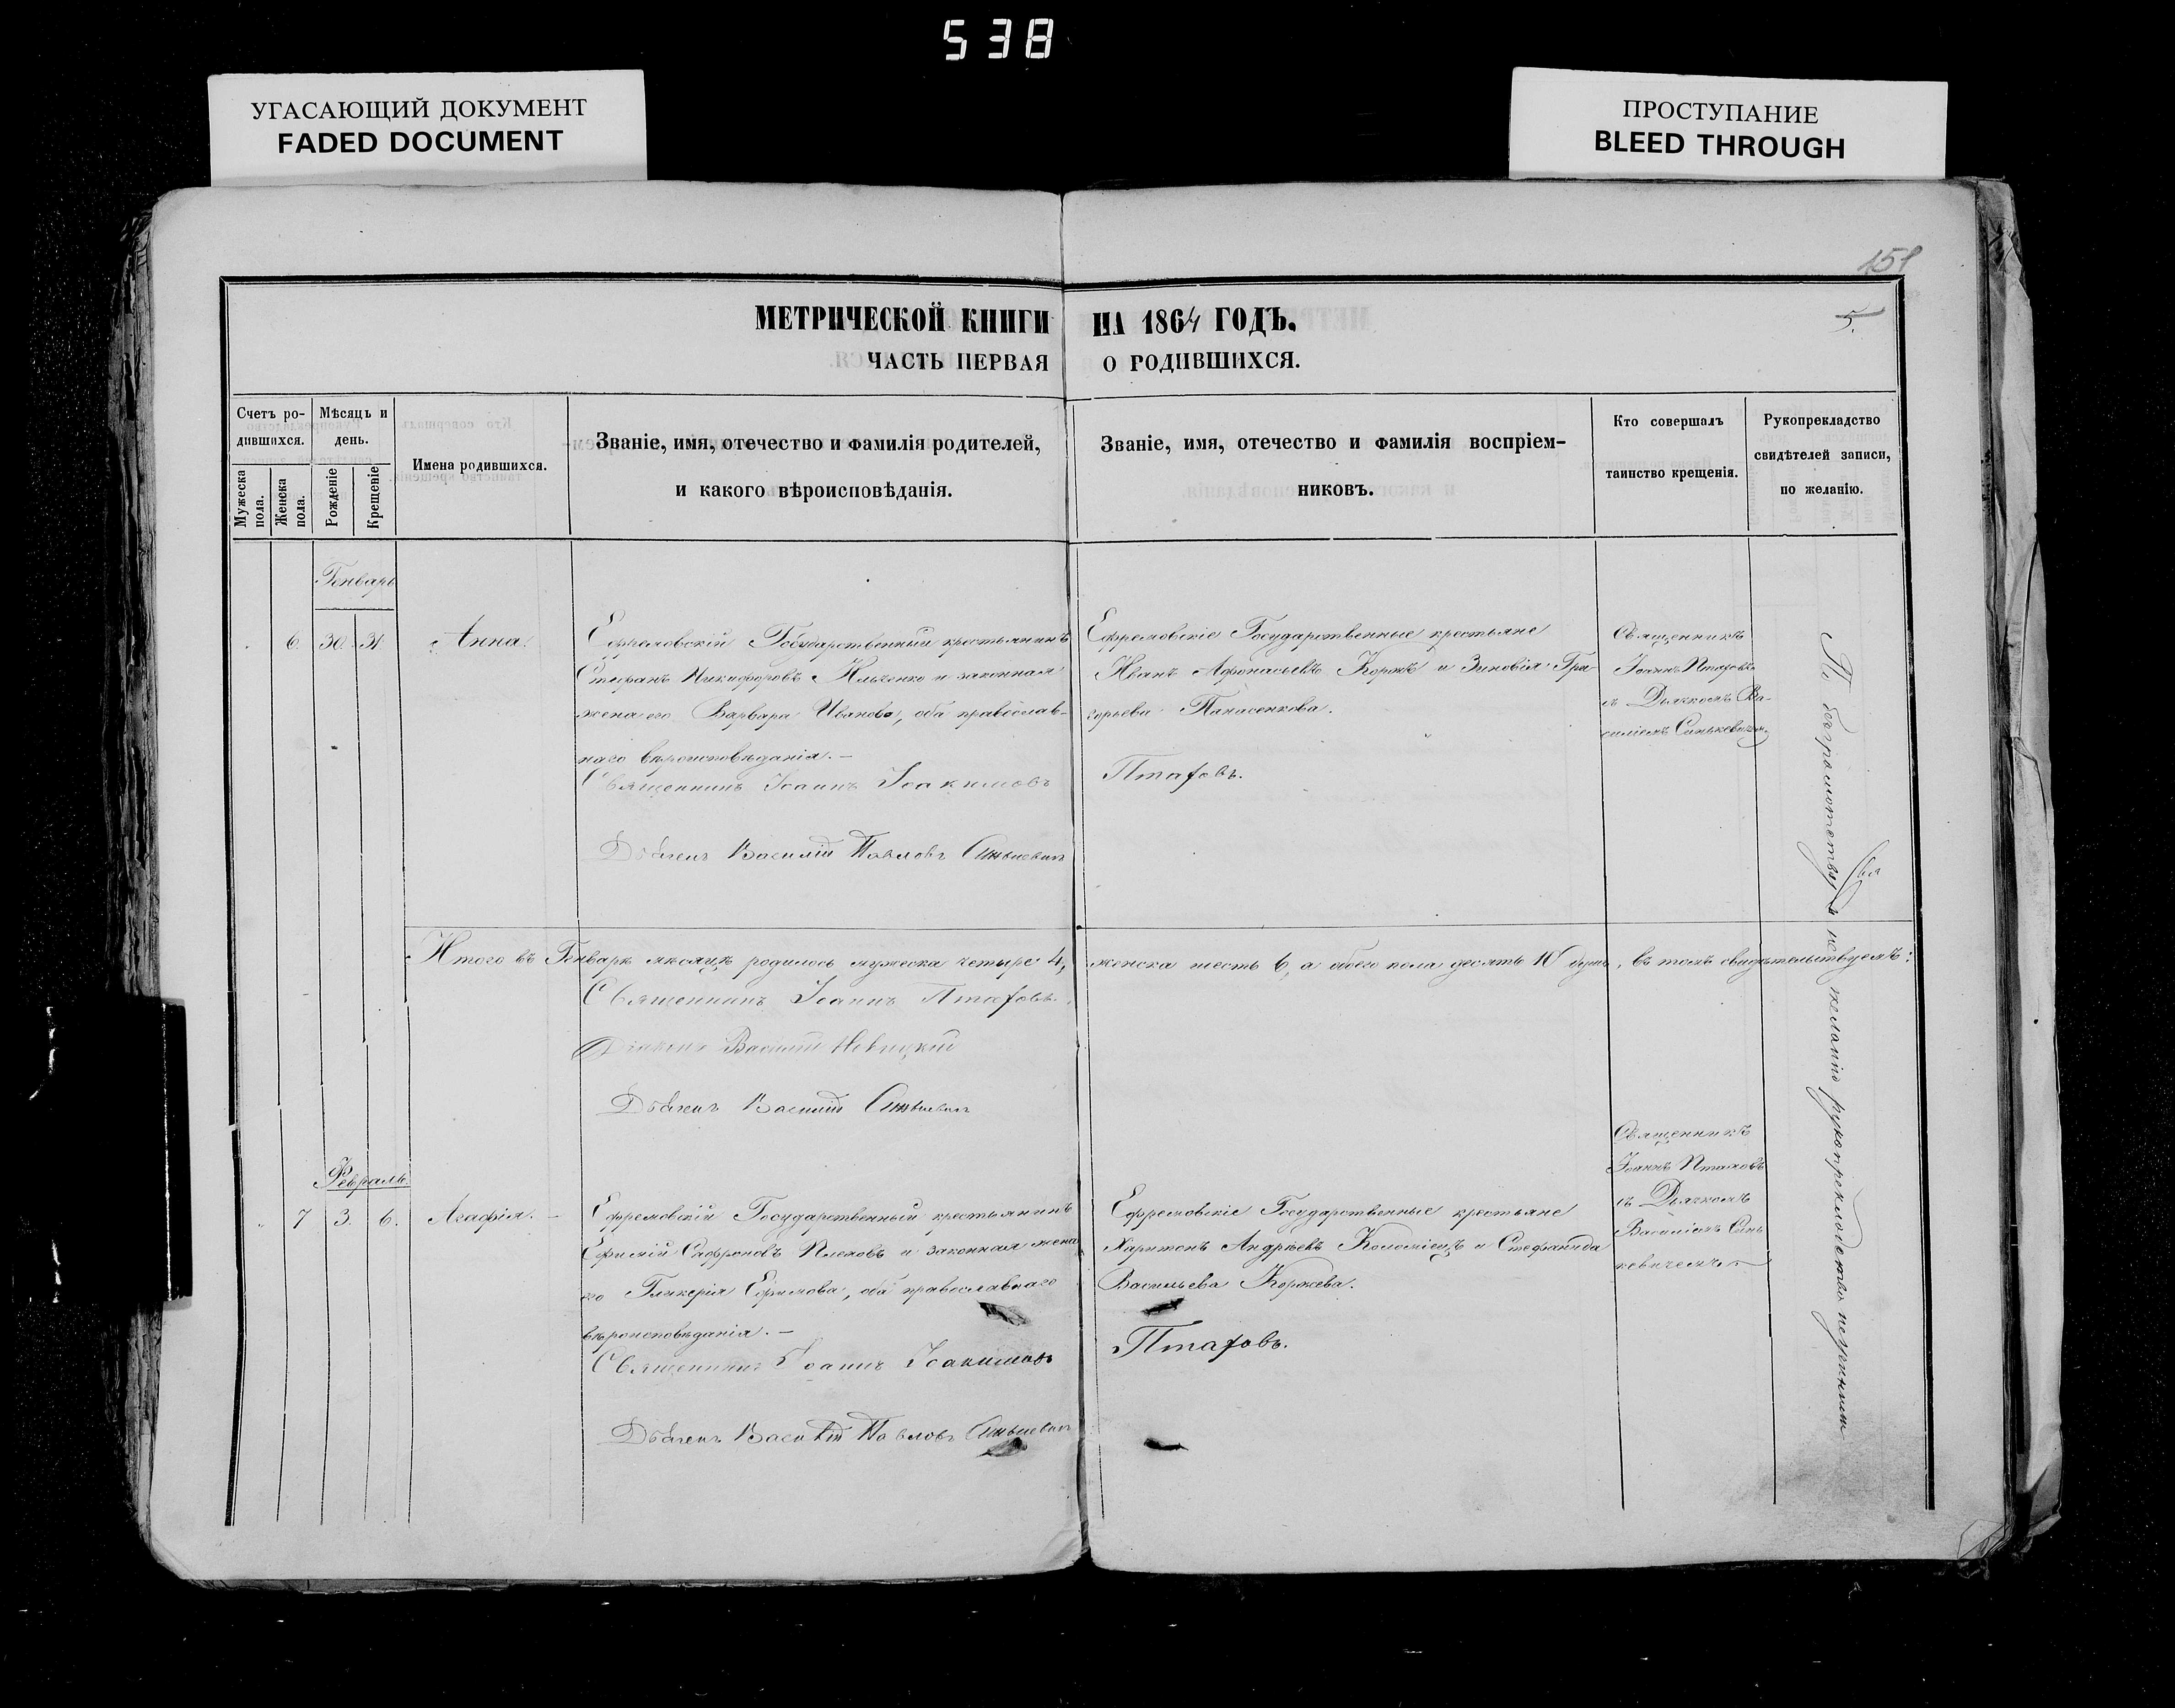 538
УГАСАЮЩИЙ ДОКУМЕНТ
FADED DOCUMENT
ПРОСТУПАНИЕ
BLEED THROUGH
151
МЕТРИЧЕСКОЙ КНИГИ НА 1864 ГОДЪ.
5.
ЧАСТЬ ПЕРВАЯ О РОДИВШИХСЯ.
Счетъ ро-
дившихся.
Мужеска пола.
Женска пола.
Мѣсяцъ и
день.
Рожденіе
Крещеніе
Имена родившихся.
Званіе, имя, отечество и фамилія родителей,
и какого вѣроисповѣданія.
Званіе, имя, отечество и фамилія воспріем-
никовъ.
Кто совершалъ
таинство крещенія.
Рукопрекладство
свидѣтелей записи,
по желанію.
Генварь
6. 30. 31. Анна.
Ефремовскій Государственный крестьянинъ
Стефанъ Никифоровъ Ильченко и законная
жена его Варвара Иванова, оба православ-
наго вѣроисповѣданія. –
Священникъ Іоаннъ Іоакимовъ
Дьячекъ Василій Павловъ Синькевичъ
Ефремовскіе Государственные крестьяне
Иванъ Афонасьевъ Коржъ и Зиновія Гри-
горьева Панасенкова.
Птаховъ.
Священникъ
Іоаннъ Птаховъ
съ Дьячкомъ Ва-
силіемъ Синькевичемъ
По безграмотству и не желанію рукоприкладство неучинили
Итого въ Генварѣ мѣсяцѣ родилось мужеска четыре 4, женска шесть 6, а обоего пола десять 10 душъ, въ томъ свидѣтельствуемъ:
Священникъ Іоаннъ Птаховъ.
Діаконъ Василій
Дьячекъ Василій Синькевичъ
Февраль.
7 3. 6. Агафія. –
Ефремовскій Государственный крестьянинъ
Ефимій Сафроновъ и законная жена
его Гликерія Ефимова, оба православнаго
вѣроисповѣданія. –
Священникъ Іоаннъ Іоакимовъ
Дьячекъ Василій Павловъ Синькевичъ
Ефремовскіе Государственные крестьяне
Харитонъ Андрѣевъ Коломіецъ и Стефанида
Васильева Коржева.
Птаховъ.
Священникъ
Іоаннъ Птаховъ
съ Дьячкомъ
Василіемъ Синь
кевичемъ